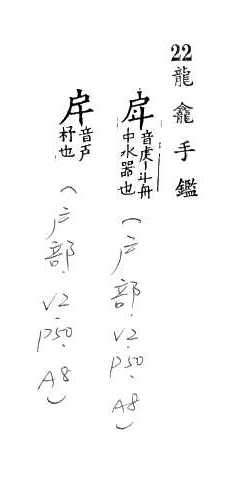 22 龍龕手鑑
戽 音虎丨斗舟
中水器也
(户部.V2.P50.A8)
音戸
杼也
(户部.V2.P50.A8)